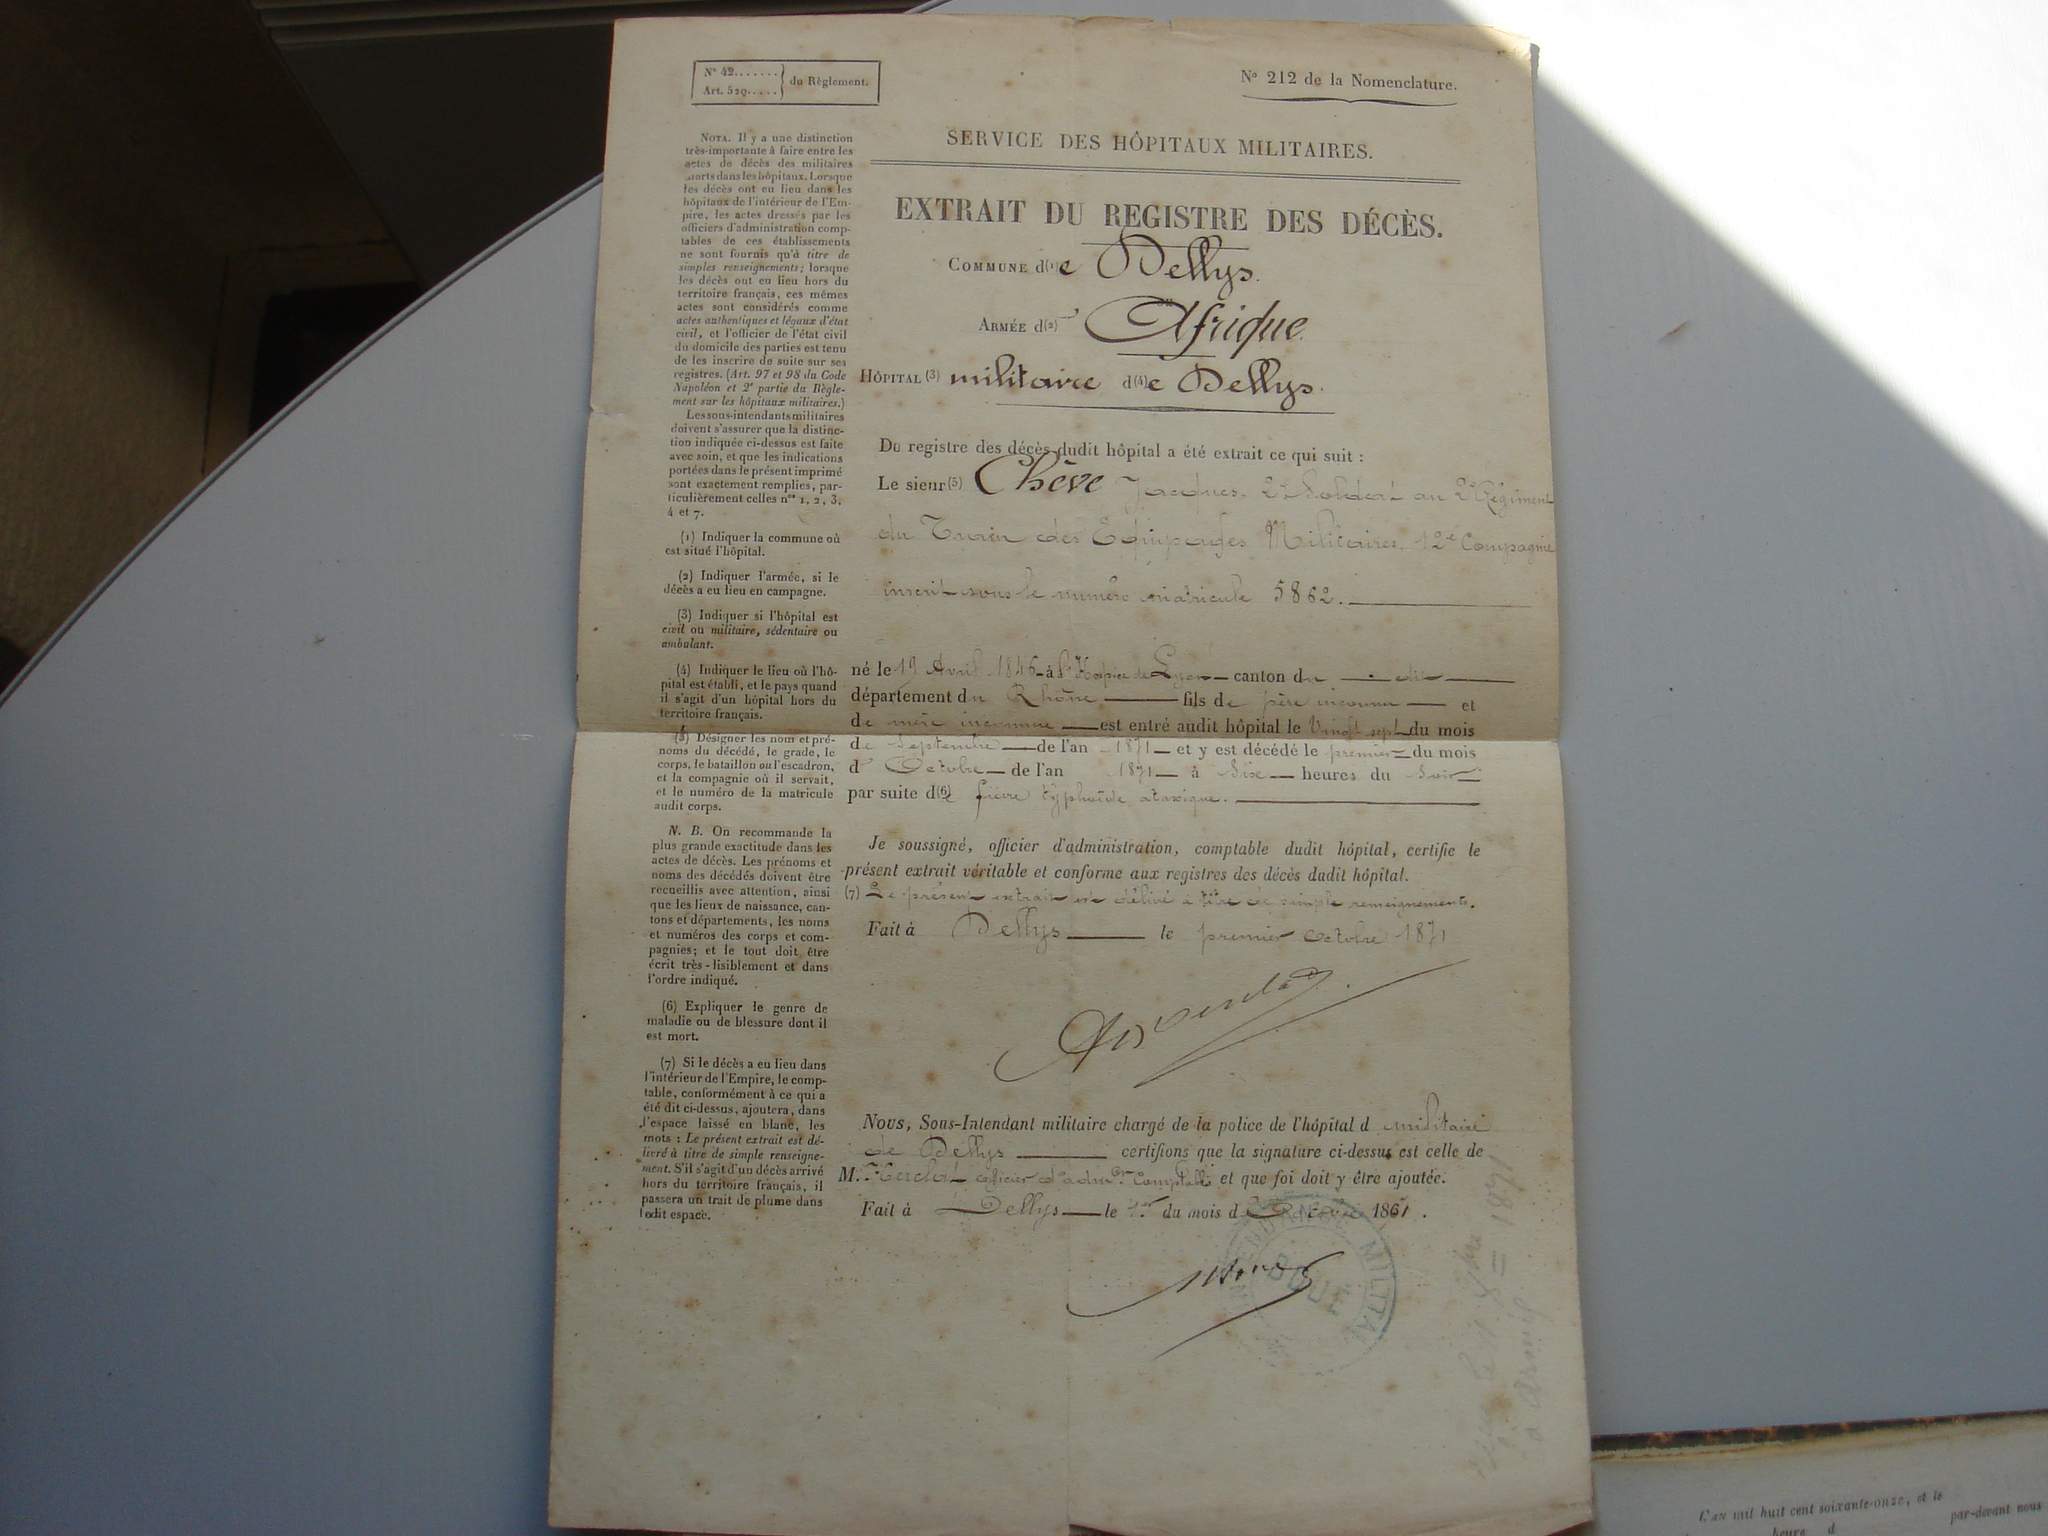 N° 42.......
Art. 529.....
du Règlement.
N° 212 de la Nomenclature.
SERVICE DES HÔPITAUX MILITAIRES.
EXTRAIT DU REGISTRE DES DÉCÈS.
COMMUNE d(1)e Dellys.
ARMÉE d(2)' Afrique.
HÔPITAL (3) militaire d(4)e Dellys.
Du registre des décès dudit hôpital a été extrait ce qui suit :
Le sieur (5) Chève Jacques, 2e Soldat au 2e Régiment
du Train des Equipages Militaires, 12e Compagnie
inscrit sous le numéro matricule 5862.
né le 19 Avril 1846 à l'Hospice de Lyon canton du dit
département du Rhône fils de père inconnu et
de mère inconnue est entré audit hôpital le Vingt sept du mois
de Septembre de l'an 1871 et y est décédé le premier du mois
d' Octobre de l'an 1871 à Six heures du Soir
par suite d(6)e fièvre typhoïde ataxique.
Je soussigné, officier d'administration, comptable dudit hôpital, certifie le
présent extrait véritable et conforme aux registres des décès dudit hôpital.
(7) Le présent extrait est délivré à titre de simple renseignements.
Fait à Dellys le premier Octobre 1871
Nous, Sous-Intendant militaire chargé de la police de l'hôpital d militaire
de Dellys certifions que la signature ci-dessus est celle de
M. officier d'adm.on Comptable et que foi doit y être ajoutée.
Fait à Dellys le 1er du mois d'Octobre 1871.
MILITAI
NOTA. Il y a une distinction
très-importante à faire entre les
actes de décès des militaires
morts dans les hôpitaux. Lorsque
les décès ont eu lieu dans les
hôpitaux de l'intérieur de l'Em-
pire, les actes dressés par les
officiers d'administration comp-
tables de ces établissements
ne sont fournis qu'à titre de
simples renseignements; lorsque
les décès ont eu lieu hors du
territoire français, ces mêmes
actes sont considérés comme
actes authentiques et légaux d'état
civil, et l'officier de l'état civil
du domicile des parties est tenu
de les inscrire de suite sur ses
registres. (Art. 97 et 98 du Code
Napoléon et 2e partie du Règle-
ment sur les hôpitaux militaires.)
Les sous-intendants militaires
doivent s'assurer que la distinc-
tion indiquée ci-dessus est faite
avec soin, et que les indications
portées dans le présent imprimé
sont exactement remplies, par-
ticulièrement celles nos 1, 2, 3,
4 et 7.
(1) Indiquer la commune où
est situé l'hôpital.
(2) Indiquer l'armée, si le
décès a eu lieu en campagne.
(3) Indiquer si l'hôpital est
civil ou militaire, sédentaire ou
ambulant.
(4) Indiquer le lieu où l'hô-
pital est établi, et le pays quand
il s'agit d'un hôpital hors du
territoire français.
(5) Désigner les nom et pré-
noms du décédé, le grade, le
corps, le bataillon ou l'escadron,
et la compagnie où il servait,
et le numéro de la matricule
audit corps.
N. B. On recommande la
plus grande exactitude dans les
actes de décès. Les prénoms et
noms des décédés doivent être
recueillis avec attention, ainsi
que les lieux de naissance, can-
tons et départements, les noms
et numéros des corps et com-
pagnies; et le tout doit être
écrit très-lisiblement et dans
l'ordre indiqué.
(6) Expliquer le genre de
maladie ou de blessure dont il
est mort.
(7) Si le décès a eu lieu dans
l'intérieur de l'Empire, le comp-
table, conformément à ce qui a
été dit ci-dessus, ajoutera, dans
l'espace laissé en blanc, les
mots : Le présent extrait est dé-
livré à titre de simple renseigne-
ment. S'il s'agit d'un décès arrivé
hors du territoire français, il
passera un trait de plume dans
ledit espace.
1871
L'AN mil huit cent soixante-onze, et le
par-devant nous
heure d